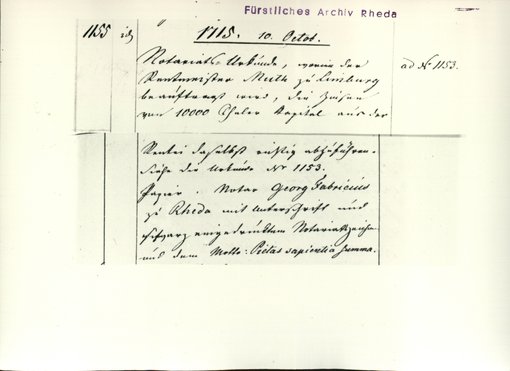 Fürstliches Archiv Rheda
1155
1715. 10. Octob.
ad No 1153.
Notariats-Urkunde, worin der
Rentmeister Muth zu Limburg
beauftragt wird, die Zinsen
von 10000 Thaler Kapital aus der
Rentei daselbst richtig abzuführen.
Siehe die Urkunde No 1153.
Papier. Notar Georg Fabricius
zu Rheda mit Unterschrift und
schwarz eingedrücktem Notariatszeichen
und dem Motto: Pietas sapientia summa.